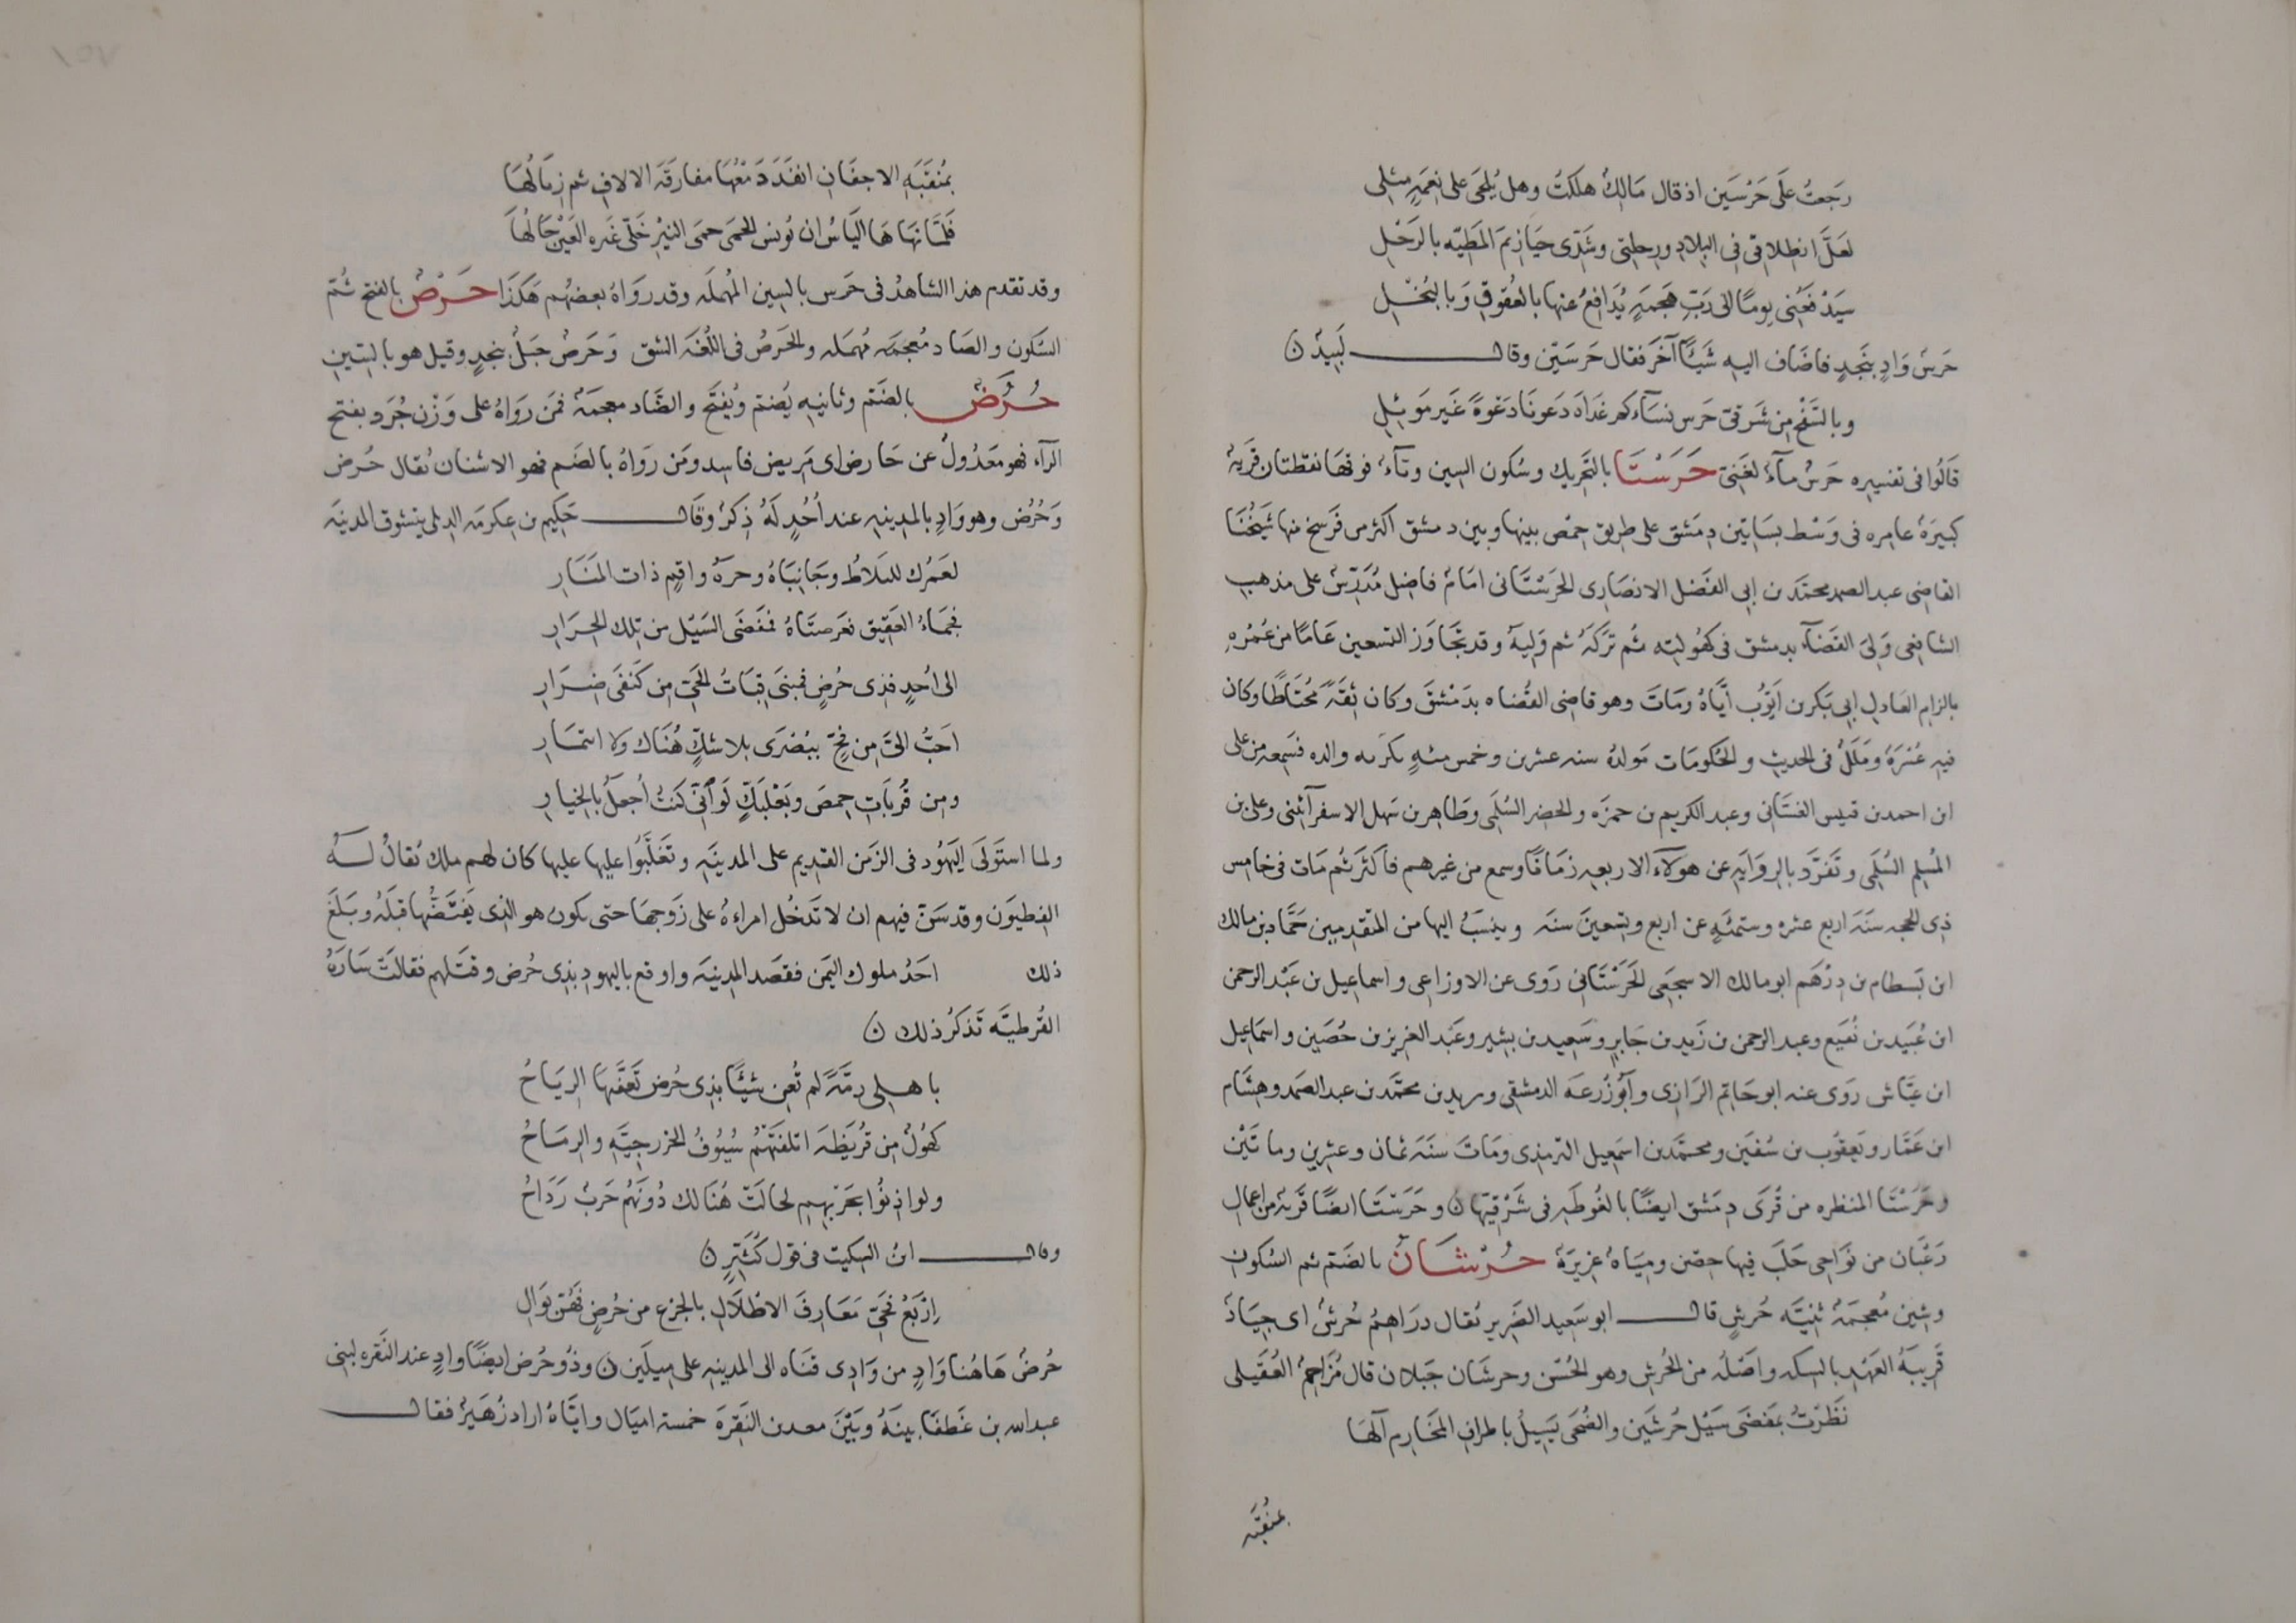 رجعتُ على حَرْسَين اذ قال مَالِكٌ هلكتَ وهل يُلحَى على نِعمَةٍ مثلى
لعَلَّ انطلاقى فى البلادِ ورحلتى وشَدّى حيازيمَ المَطيّه بالرَحْلِ
سَيَدْفَعُنِى يومًا الى رَبِّ هَجمَةٍ يُدَافِعُ عنها بالعُقوقِ وَبالبُخْلِ
حَرَس وَادٍ بنَجدٍ فاضَاف اليه شَيئًا آخَرَ فقال حَرسَين وقال لَبيدٌ ن
وبالسَفْحِ من شَرقىّ حَرسٍ نسآءكم غَدَاةَ دَعونا دَعْوَةً غَير مَوئِلِ
قَالُوا فى تفسيره حَرسٌ مآءٌ لغَنِىّ حَرَسْتَا بالتَحريك وسُكون السين وتآءٌ فوقها نقطتان قَريةٌ
كبيرَةٌ عامره فى وَسْط بسَاتين دِمَشق على طريق حِمْص بينها وبين دمشق اكثر من فَرسَخ منها شَيخُنَا
القاضى عبد الصمد محمّد بن ابى الفَضل الانصَارى الحَرَسْتَانى امَامٌ فاضِل مُدَرّسٌ على مذهب
الشافعى وَلىَ القضآء بدمشق فى كهُولته ثُم تَرَكَهُ ثم وَليهُ وقد تجَاوَز التسعين عَامًا من عُمُره
بالزام العَادل ابى بَكر بن اَيّوب اَيّاهُ ومَاتَ وهو قاضى القُضاه بدمَشقَ وكان ثقَةً مُحتَاطًا وكان
فيه عُسْرَةٌ ومَلَلٌ فى الحديث والحُكومَات مَولدُهُ سنه عشرين وخمس مئةٍ بكّر به والده فسَمِعَ من على
ابن احمد بن قبيس الغسَّانى وعبد الكريم بن حمزَه والخضر السُلَمى وطَاهر بن سَهل الاسفرآئنى وعلى بن
المُسلم السُلَمى وتَفرَّد بالروَايَةِ عن هولآءِ الاربعه زمَانًا وسمع من غيرهم فاكثَر ثُم مَات فى خامس
ذى الحجه سَنَة اربع عشره وستمئةٍ عن اربع وتسعين سنَه وينسَبُ اليها من المتقدمين حَمَّاد بن مالك
ابن بَسطام بن دِرْهَم ابو مالك الاشجَعى الحَرَسْتَانى رَوى عن الاوزاعى واسماعيل بن عَبْد الرحمن
ابن عُبَيد بن نُفَيع وعبد الرحمن بن زَيد بن جَابر وسَعيد بن بشير وعَبْد العَزيز بن حُصَين واسمَاعيل
ابن عَيّاش روَى عنه ابو حَاتِم الرَازى وأبُو زُرعَه الدمشقى ويزيد بن محمّد بن عبد الصَمد وهِشَام
ابن عَمَّار ويَعقوُب بن سُفيَن ومحمّد بن اسمَعيل الترمذى ومَات سَنَة ثمان وعشرين وماتَيْن
وحَرَسْتا المنظره من قُرَى دمَشق ايضًا بالغُوطَه فى شَرْقيّها ن وحَرَسْتَا ايضًا قَريه من اعمال
رَعْبَان من نَوَاحى حَلَبَ فيها حِصْن ومِيَاهٌ غزيرَةٌ حُرْشَان بالضَم ثم السُكون
وشين مُعجمَةٌ تثنيَه حُرشٍ قال ابو سَعيد الضَرير يُقال درَاهِمُ حُرشٌ اى جيَادٌ
قَريبَةُ العَهْدِ بالسِكه واصْلُه من الحُرش وهو الخُشن وحرشَان جَبَلان قال مُزَاحمٌ العُقَيلى
نَظَرْتُ بمَفضَى سَيْل حُرشَين والضُحَى يَسيلُ باطراف المَخَارم آلهَا
بمنقبَه
بمُنقَبَةِ الاجفَانِ انفَدَ دَمْعُهَا مفارقَة الالافِ ثم زِيَالُهَا
فَلمَّا نهَاهَا اليَاسُ ان تُونسَ الحِمَى حمَى النيْرِ خَلّى عَبره العَيْن جَالُهَا
وقد تقدم هذا الشاهدُ فى حَرس بالسين المُهملَه وقد رَوَاهُ بعضُهُم هَكَذَا حَرْصٌ بالفتح ثُم
السَكون والصَاد مُعجمَه مُهمَله والحَرصُ فى اللُغَه الشق وَحَرصٌ جَبَلٌ بنجدٍ وقيل هو بالسين
حُرُضٌ بالضَم وثانيه يُضم ويُفتَح والضَاد معجمَةٌ فمن رَوَاهُ على وَزْن جُرَد بفتح
الرآء فهو مَعْدُولٌ عن حَارض اى مَريض فاسد ومَن رَوَاهُ بالضَم فهو الاشنان يُقال حُرض
وَحُرُض وهو وَادٍ بالمدينه عند اُحُدٍ لَهُ ذِكرٌ وقَال حَكيم بن عكرمَه الديلى يتشوق المدينَه
لعَمْرُك للبَلاطُ وجَانِبَاهُ وحرةُ واقِمٍ ذات المنَارِ
فجمَاءُ العَقيق فعَرصتَاهُ فمَفضَى السَيْل من تلك الحِرَارِ
الى اُحُدٍ فذى حُرُضٍ فمبنَى قبَابُ الحَىّ من كَنَفَى ضِرَارِ
احَبُّ الىَّ من فِجّ ببُصْرَى بلا شكٍّ هُنَاك ولا ائتمَارِ
ومن قُريَاتِ حِمصَ وبَعْلبَكٍّ لَو اَنّى كُنتُ اُجعَلُ بالخِيارِ
ولما استَولَى اليَهُود فى الزَمن القديم على المدينَه وتَغَلّبُوا عليها عليها كان لهم ملك يُقالُ لَهُ
الفِطيَون وقد سَنّ فيهم ان لا تَدخُل امراةٌ على زَوجها حتى يكون هو الذى يَفتَضُّها قبلَهُ وبَلَغَ
ذلك احَدَ ملوك اليَمن فقصَد المدينَه واوقع باليهود بذى حُرُض وقتَلهم فقالَتْ سَارَةُ
القُرظيّه تَذكرُ ذلك ن
باهلى رمّةً لم تُغن شيئًا بذى حُرض تعَفّيها الريَاحُ
كهُولٌ من قُرَيظَه اتلفَتْهُم سُيُوفُ الخزرجيّه والرمَاحُ
ولو اذِنُوا بحَربهم لحالَتْ هُنَالك دُونَهُم حَربٌ رَدَاحُ
وقال ابن السِكيت فى قول كُثيّرٍ ن
اِرْبَعْ فحَىّ مَعَارفَ الاطْلَالِ بالجزع من حُرضٍ فهُنّ بَوَالِ
حُرضٌ هَاهُنا وَادٍ من وَادِى قنَاه الى المدينه على ميلَين ن وذُو حُرض ايضًا وادٍ عند النَقره لبنى
عبد الله بن غَطفَا بينَهُ وبَيْنَ معدن النَقِرَة خمسة اميَال وايَّاهُ اراد زُهَيرٌ فقال